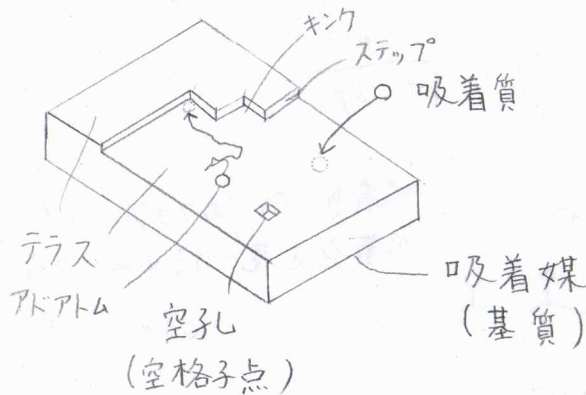 キンク
ステップ
吸着質
テラス
アドアトム
空孔
(空格子点)
吸着媒
(基質)